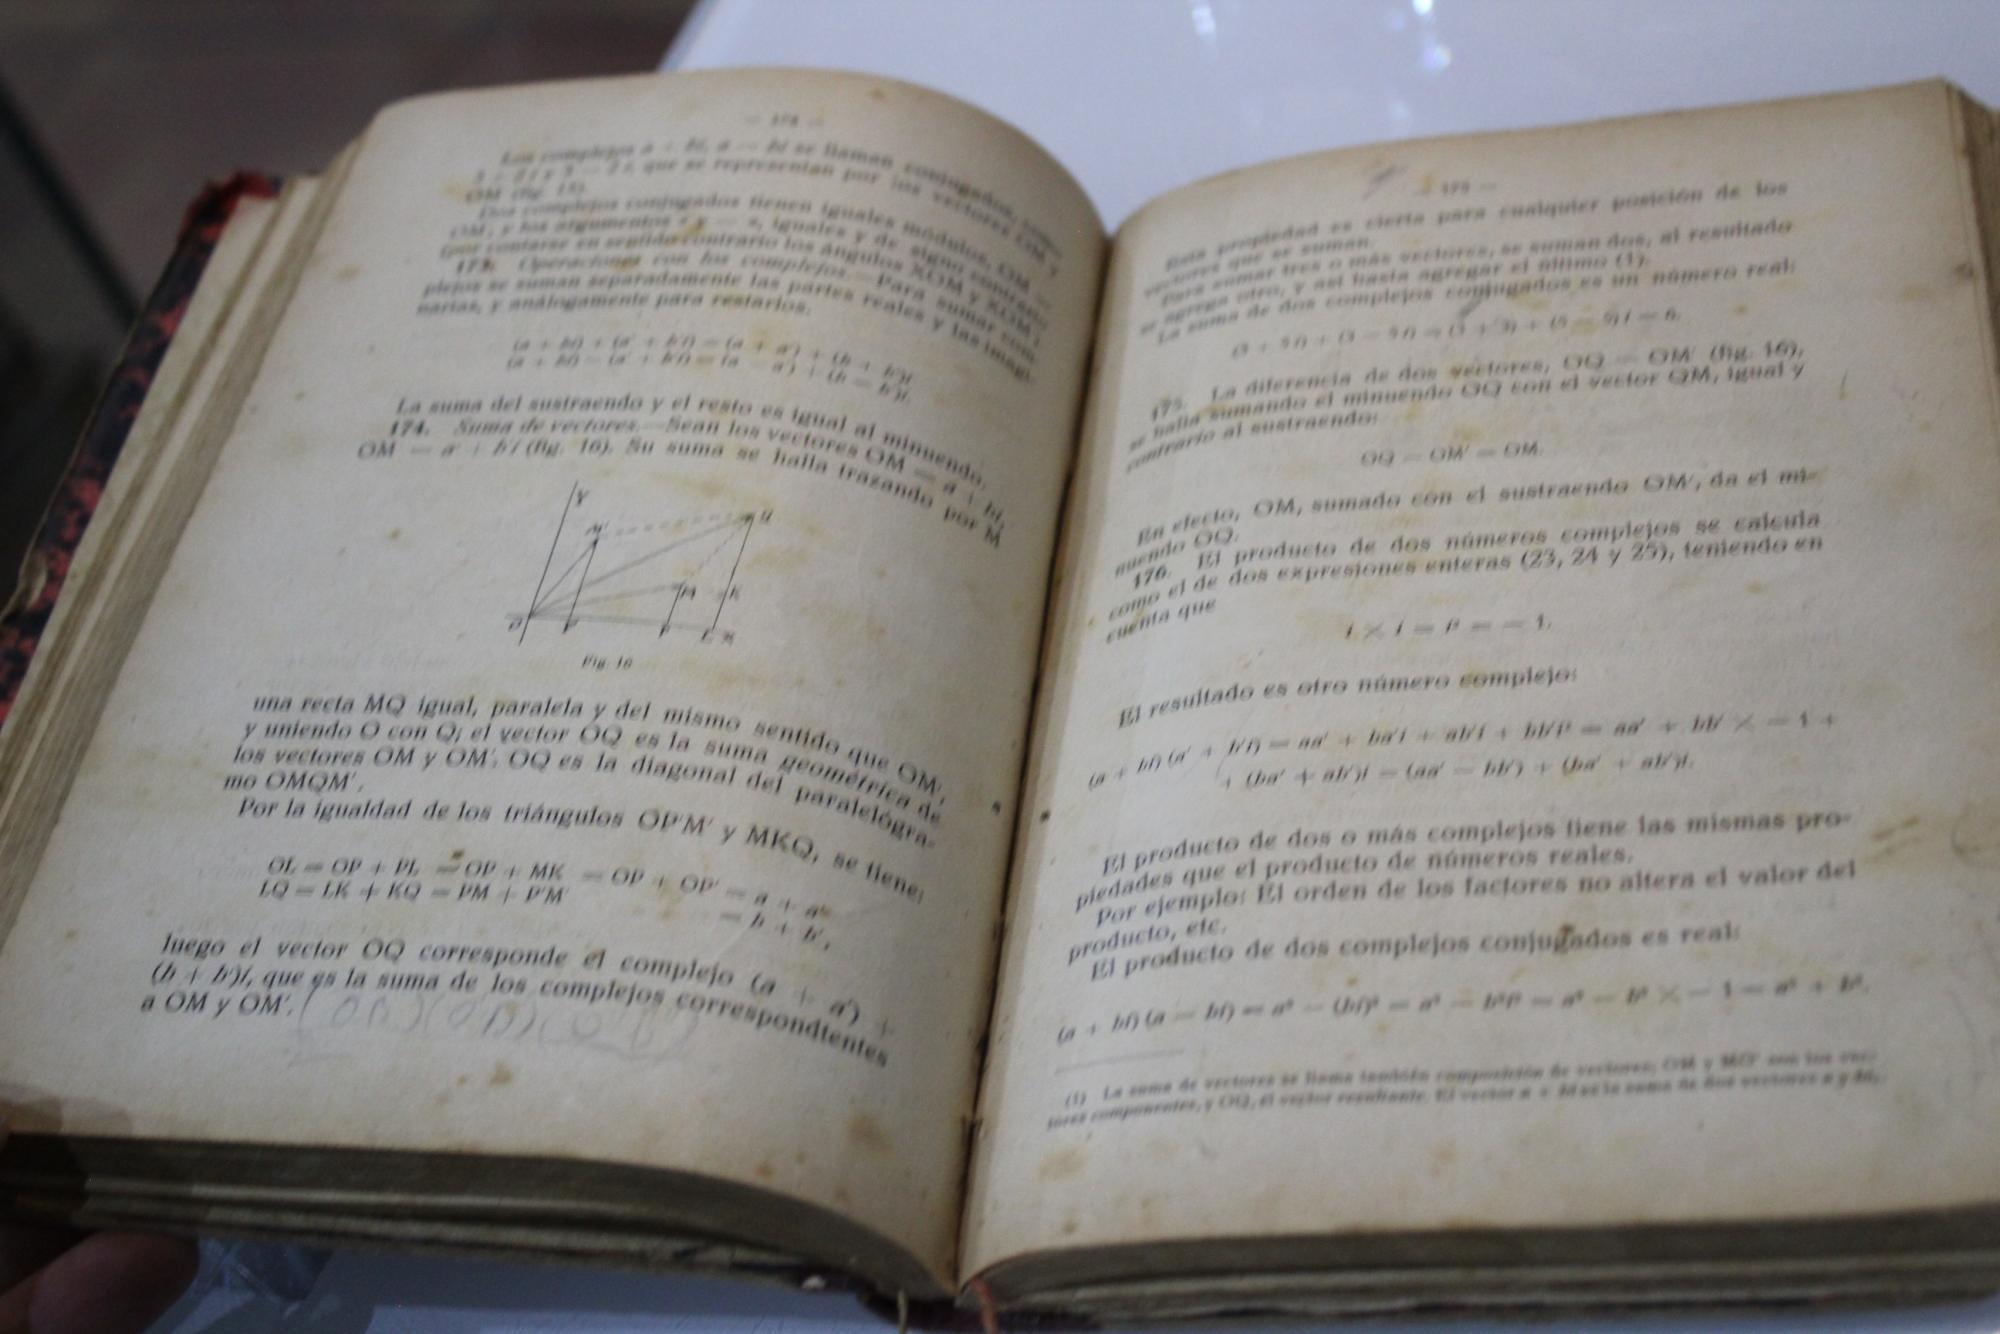 Los complejos a + bi, a — bi se llaman conjugados, como
que se representan por los vectores OM y
OM' (fig. 15).
Dos complejos conjugados tienen iguales módulos, OM =
OM', y los argumentos iguales y de signo contrario
(por contarse en sentido contrario los ángulos XOM y XOM').
173. Operaciones con los complejos.—Para sumar com-
plejos se suman separadamente las partes reales y las imagi-
narias, y análogamente para restarlos:
(a + bi) + (a' + b'i) = (a + a') + (b + b')i
(a + bi) — (a' + b'i) = (a — a') + (b — b')i.
La suma del sustraendo y el resto es igual al minuendo.
174. Suma de vectores.—Sean los vectores OM = a + bi,
OM' = a' + b'i (fig. 16). Su suma se halla trazando por M
Y
M'
Q
M
K
O
P'
P
L X
Fig. 16
una recta MQ igual, paralela y del mismo sentido que OM',
y uniendo O con Q; el vector OQ es la suma geométrica de
los vectores OM y OM'. OQ es la diagonal del paralelógra-
mo OMQM'.
Por la igualdad de los triángulos OP'M' y MKQ, se tiene:
OL = OP + PL = OP + MK = OP + OP' = a + a'
LQ = LK + KQ = PM + P'M' = b + b',
luego el vector OQ corresponde el complejo (a + a') +
(b + b')i, que es la suma de los complejos correspondientes
a OM y OM'.
— 175 —
Esta propiedad es cierta para cualquier posición de los
vectores que se suman.
Para sumar tres o más vectores, se suman dos, al resultado
se agrega otro, y así hasta agregar el último (1).
La suma de dos complejos conjugados es un número real:
(3 + 5i) + (3 — 5i) = (3 + 3) + (5 — 5)i = 6.
175. La diferencia de dos vectores, OQ — OM' (fig. 16),
se halla sumando el minuendo OQ con el vector QM, igual y
contrario al sustraendo:
OQ — OM' = OM.
En efecto, OM, sumado con el sustraendo OM', da el mi-
nuendo OQ.
176. El producto de dos números complejos se calcula
como el de dos expresiones enteras (23, 24 y 25), teniendo en
cuenta que
i × i = i² = — 1.
El resultado es otro número complejo:
(a + bi) (a' + b'i) = aa' + ba'i + ab'i + bb'i² = aa' + bb' × — 1 +
+ (ba' + ab')i = (aa' — bb') + (ba' + ab')i.
El producto de dos o más complejos tiene las mismas pro-
piedades que el producto de números reales.
Por ejemplo: El orden de los factores no altera el valor del
producto, etc.
El producto de dos complejos conjugados es real:
(a + bi) (a — bi) = a² — (bi)² = a² — b²i² = a² — b² × — 1 = a² + b².
(1) La suma de vectores se llama también composición de vectores; OM y MQ son los vec-
tores componentes, y OQ, el vector resultante. El vector a + bi es la suma de dos vectores a y bi.